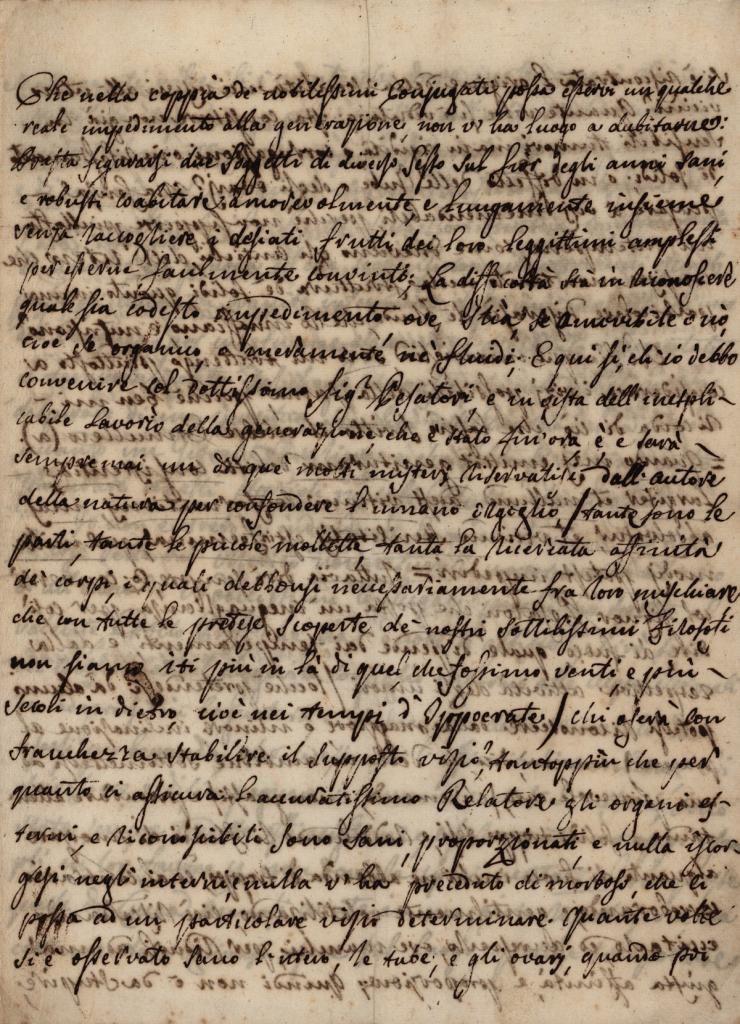 Che nella coppia de nobilissimi Conjugati possa esservi un qualche
reale impedimento alla generazione, non v'ha luogo a dubitarne:
Basta figurarsi due Soggetti di diverso Sesso sul fior degli anni sani
e robusti coabitare amorevolmente e lungamente insieme
senza raccogliere i desiati frutti dei loro leggittimi amplessi
per esserne facilmente convinto; La difficoltà stà in riconoscere
quale sia codesto impedimento ove stia se amovibile o nò,
cioè se organico o meramente nei fluidi, E qui sì, ch'io debbo
convenire col Dottissimo Sigr. Pesatori, e in vista dell'inespli-
cabile lavorio della generazione, che è stato fin'ora, è e sarà
sempremai un di què molti misterj riservatisi dall'autore
della natura per confondere l'umano orgoglio / tante sono le
parti, tante le piccole mollette, tanta la ricercata affinità
de' corpi, i quali debbonsi necessariamente fra loro mischiare,
che con tutte le pretese scoperte de' nostri sottilissimi Filosofi
non siamo iti piu in là di quel che fossimo venti e più
secoli in dietro, cioè nei tempi d'Ippocrate / chi oserà con
franchezza stabilire il supposto vizio, tantoppiù che per
quanto ci assicura l'accuratissimo Relatore gli organi es-
terni, e riconoscibili sono sani, proporzionati, e nulla iscor-
gesi negli interni, e nulla v'ha preceduto di morboso, che ci
possa ad un particolare vizio determinare. Quante volte
si è osservato sano l'utero, le tube, e gli ovarj, quando poi